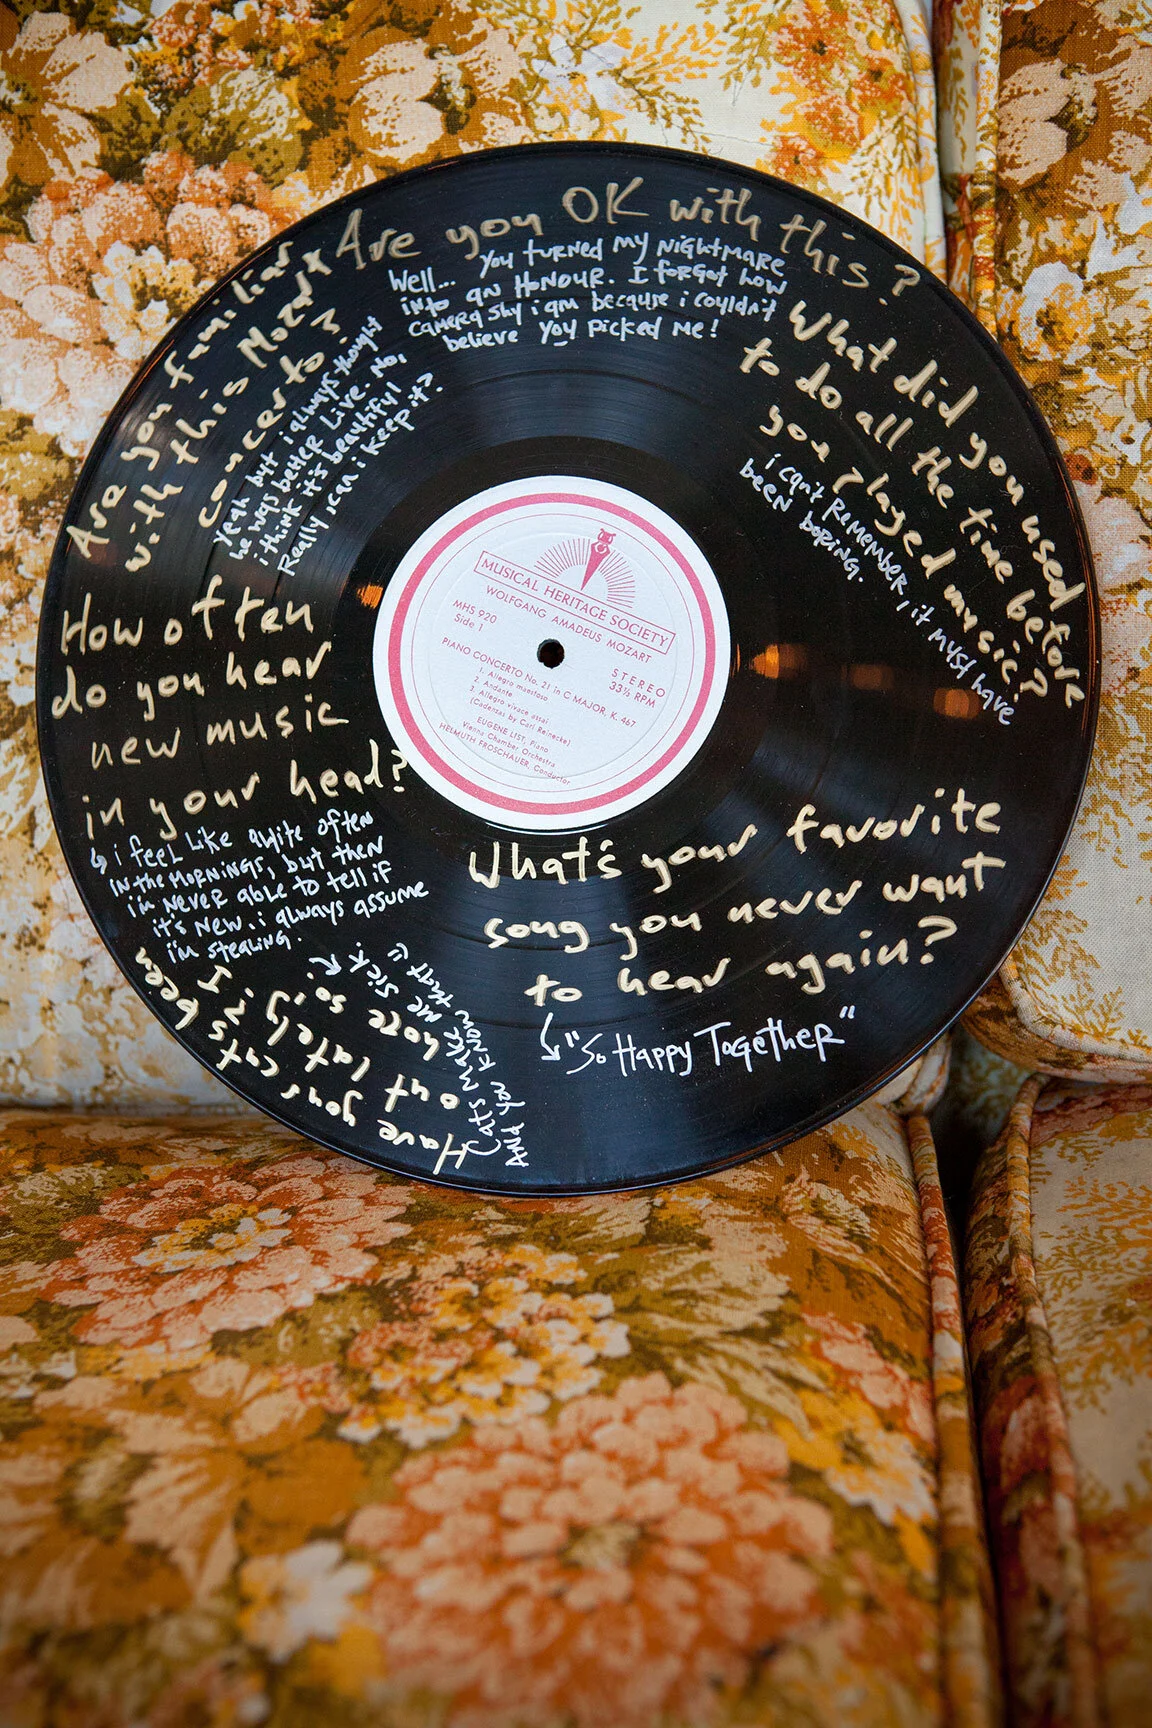 Are you OK with this?
Well... You turned my nightmare
into an honour. I forgot how
camera shy i am because i couldn't
believe you picked me!
What did you used
to do all the time before
you played music?
i can't remember, it must have
been boring.
What's your favorite
song you never want
to hear again?
"So Happy Together"
Have your cats been
out lately? I
hope so,
Cats make me sick.
And you know that
How often
do you hear
new music
in your head?
i feel like quite often
in the mornings, but then
i'm never able to tell if
it's new. i always assume
i'm stealing.
Are you familiar
with this Mozart
concerto?
Yeah but i always thought
he was better live. No,
i think it's beautiful
Really, can i keep it?
MUSICAL HERITAGE SOCIETY
WOLFGANG AMADEUS MOZART
MHS 920
Side 1
STEREO
33⅓ RPM
PIANO CONCERTO No. 21 in C MAJOR, K. 467
1. Allegro maestoso
2. Andante
3. Allegro vivace assai
(Cadenzas by Carl Reinecke)
EUGENE LIST, Piano
Vienna Chamber Orchestra
HELMUTH FROSCHAUER, Conductor